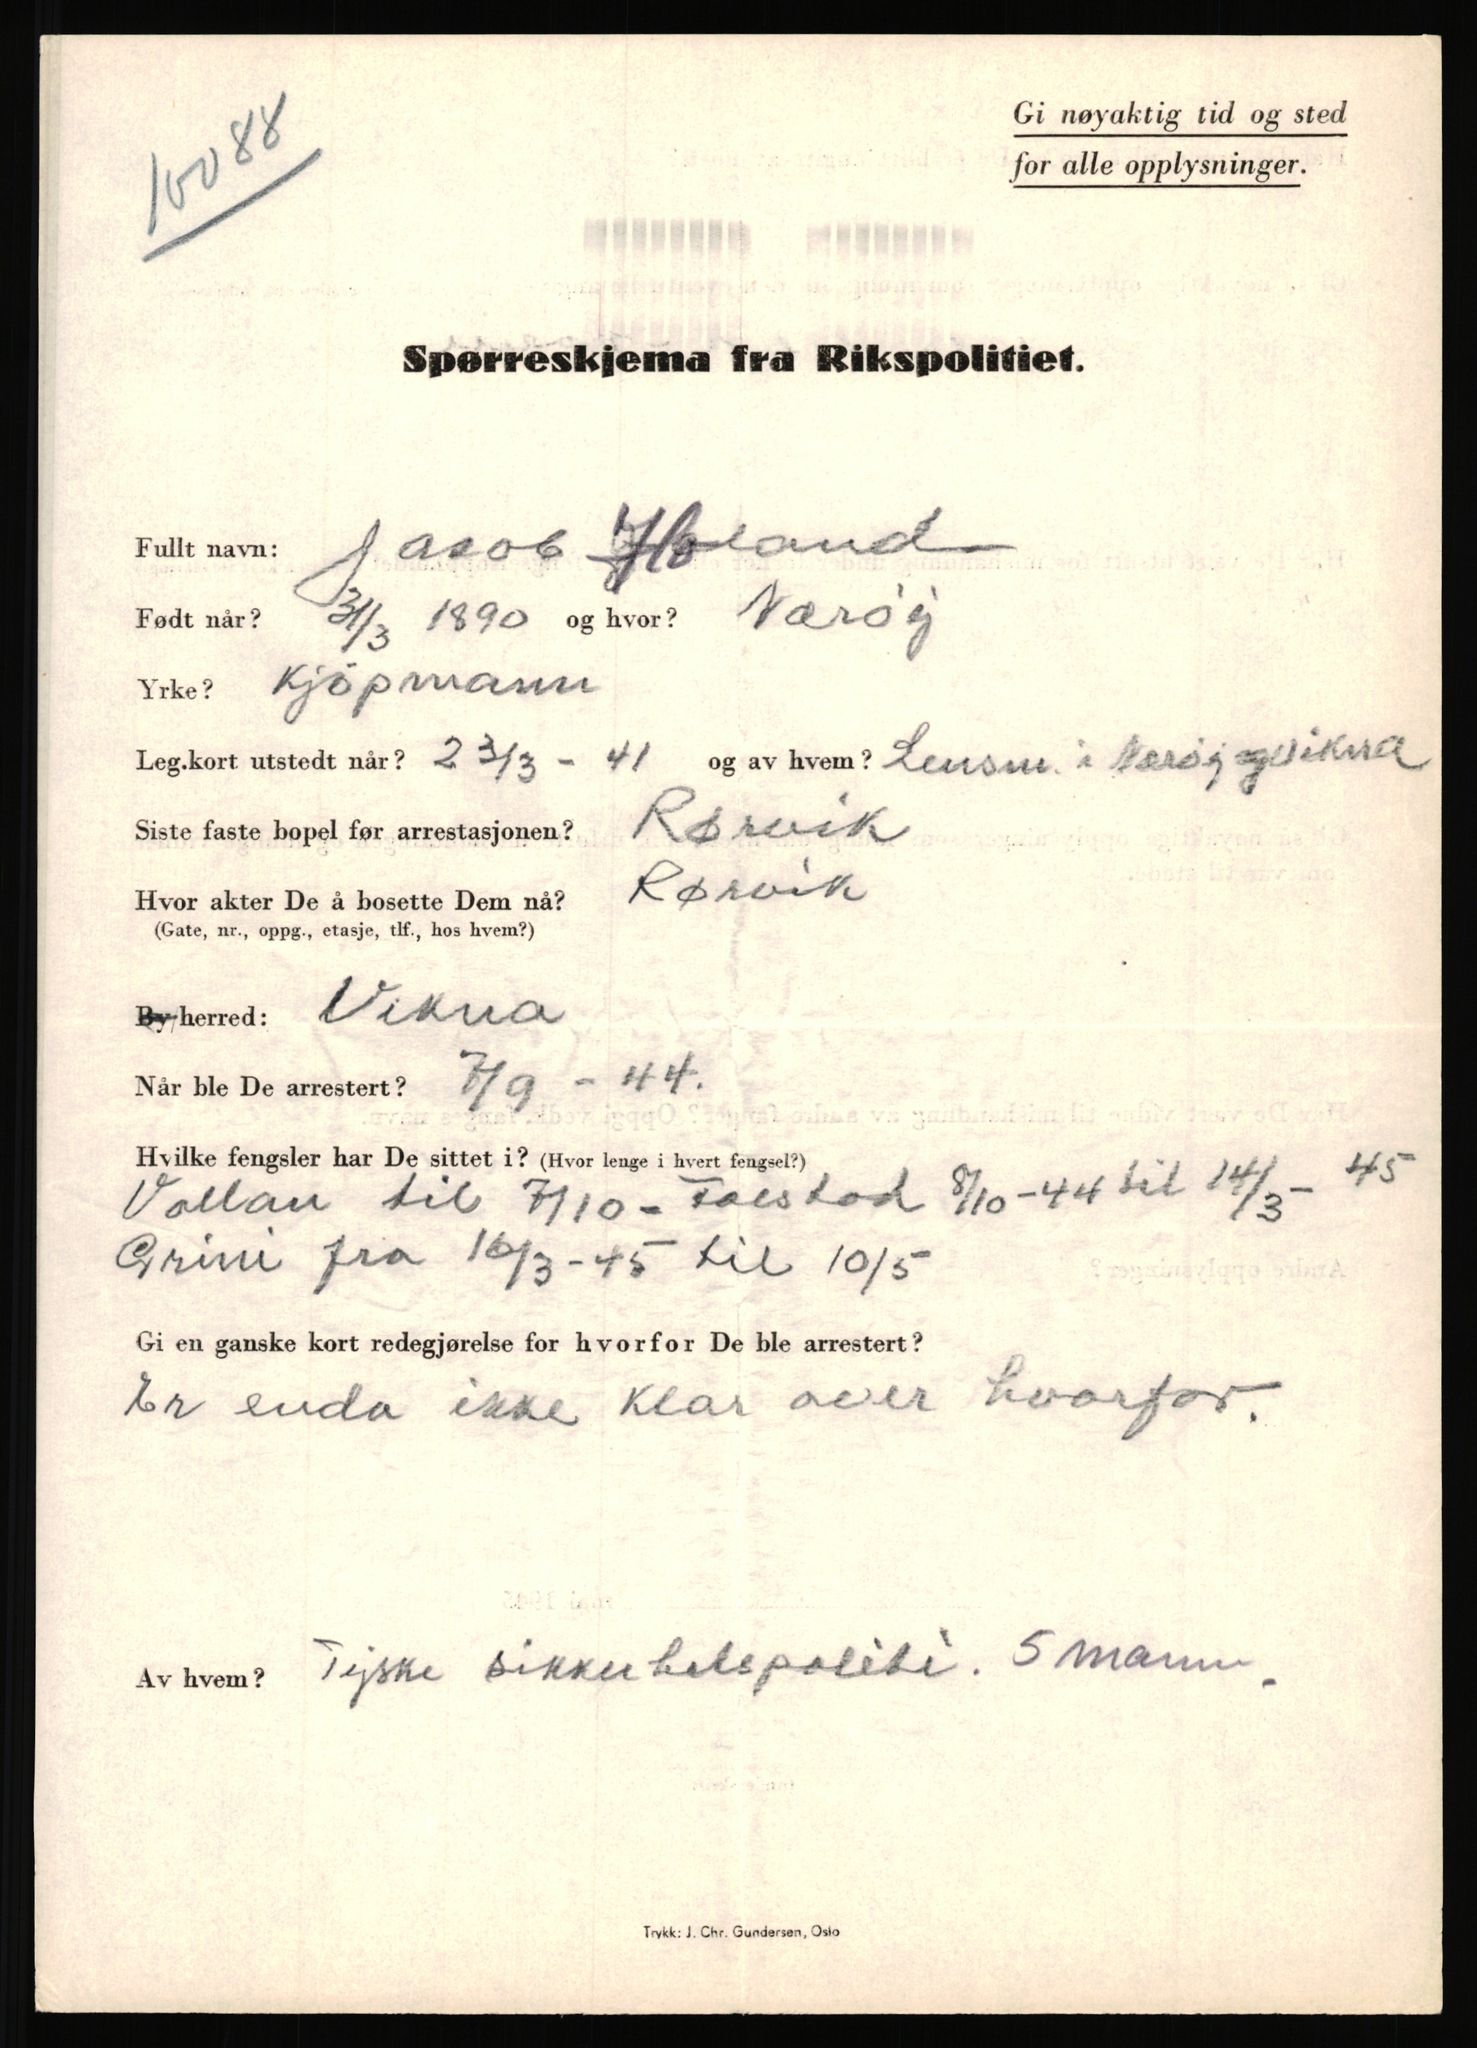 10088
Gi nøyaktig tid og sted
for alle opplysninger.
Spørreskjema fra Rikspolitiet.
Fullt navn: Jacob Holand
Født når? 31/3 1890 og hvor? Næröy
Yrke? Kjöpmann
Leg.kort utstedt når? 23/3 - 41 og av hvem? Lensm. i Næröy og Vikna
Siste faste bopel før arrestasjonen? Rørvik
Hvor akter De å bosette Dem nå? Rørvik
(Gate, nr., oppg., etasje, tlf., hos hvem?)
By/herred: Vikna
Når ble De arrestert? 7/9 - 44.
Hvilke fengsler har De sittet i? (Hvor lenge i hvert fengsel?)
Vollan til 7/10 - Falstad 8/10 - 44 til 14/3 - 45
Grini fra 16/3 - 45 til 10/5
Gi en ganske kort redegjørelse for hvorfor De ble arrestert?
Er enda ikke klar over hvorfor.
Av hvem? Tyske sikkerhetspoliti. 5 mann.
Trykk: J. Chr. Gundersen, Oslo